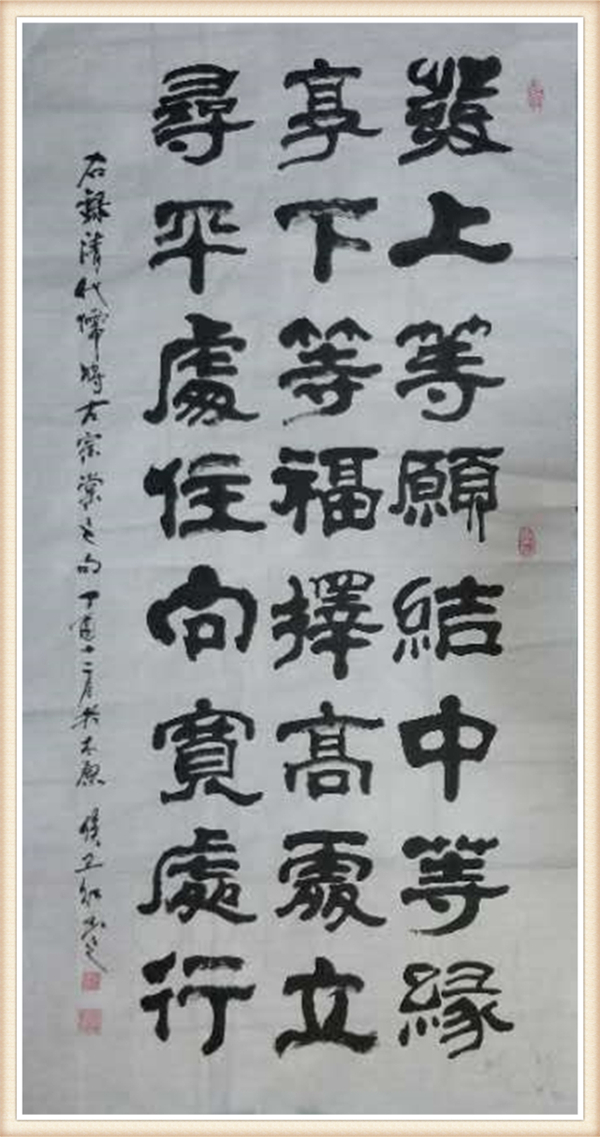 發上等願結中等緣
享下等福擇高處立
尋平處住向寬處行
右錄清代儒將左宗棠之句 丁酉十二月於太原 侯卫红書